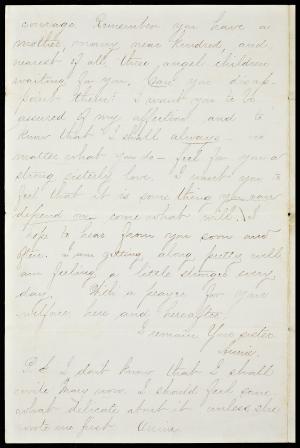 courage. Remember you have a
mother, many near kindred, and
nearest of all three angel children
waiting for you. Can you disap-
point them? I want you to be
assured of my affection and to
know that I shall always - no
matter what you do - feel for you a
strong sisterly love. I want you to
feel that it is something you can
depend on come what will. I
hope to hear from you soon and
often. I am getting along pretty well
am feeling a little stronger every
day. With a prayer for your
welfare here and hereafter
I remain Your sister
Annie.
P.S. I don't know that I shall
write now. I should feel some
what delicate about it unless she
wrote me first. Annie